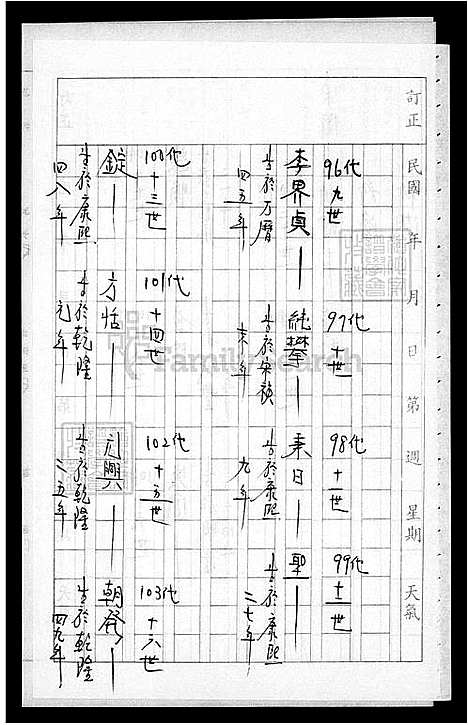 訂正
民國 年 月 日 第 週 星期 天氣
96代 九世
李界貞
生於万曆
四五年
97代 十世
純攀
生於崇禎
亥年
98代 十一世
秉日
生於康熙
九年
99代 十二世
聖
生於康熙
二七年
100代 十三世
錠
生於康熙
四八年
101代 十四世
方恬
生於乾隆
元年
102代 十五世
興
生於乾隆
二五年
103代 十六世
朝發
生於乾隆
四九年
FamilySearch